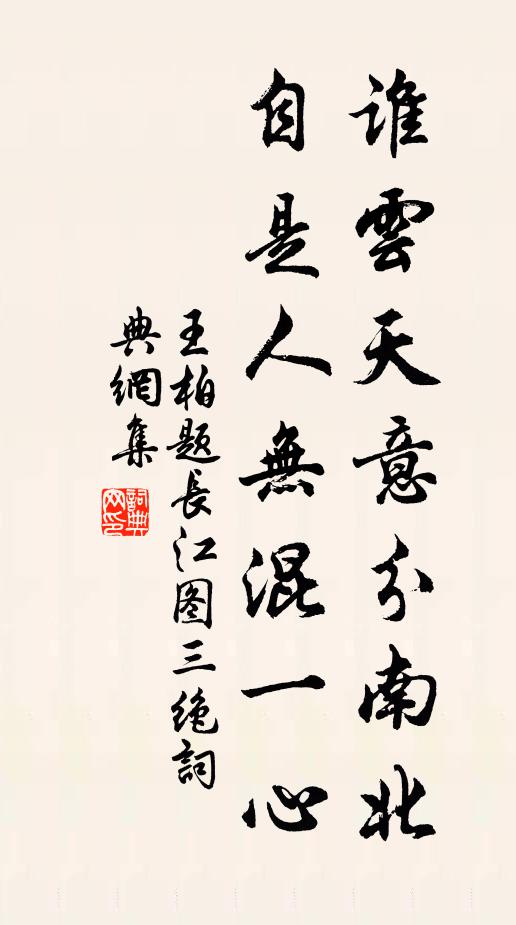 誰雲天意分南北
自是人無混一心
王柏題長江图三绝詞
典網集
詞典
网印